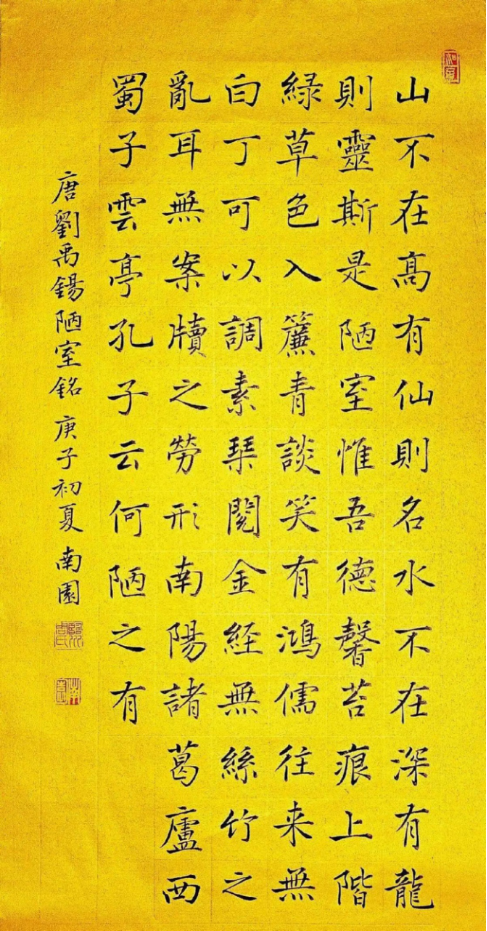 山不在高有仙則名水不在深有龍
則靈斯是陋室惟吾德馨苔痕上階
綠草色入簾青談笑有鴻儒往来無
白丁可以調素琹閱金經無絲竹之
亂耳無案牘之勞形南陽諸葛廬西
蜀子雲亭孔子云何陋之有
唐劉禹錫陋室銘庚子初夏南園